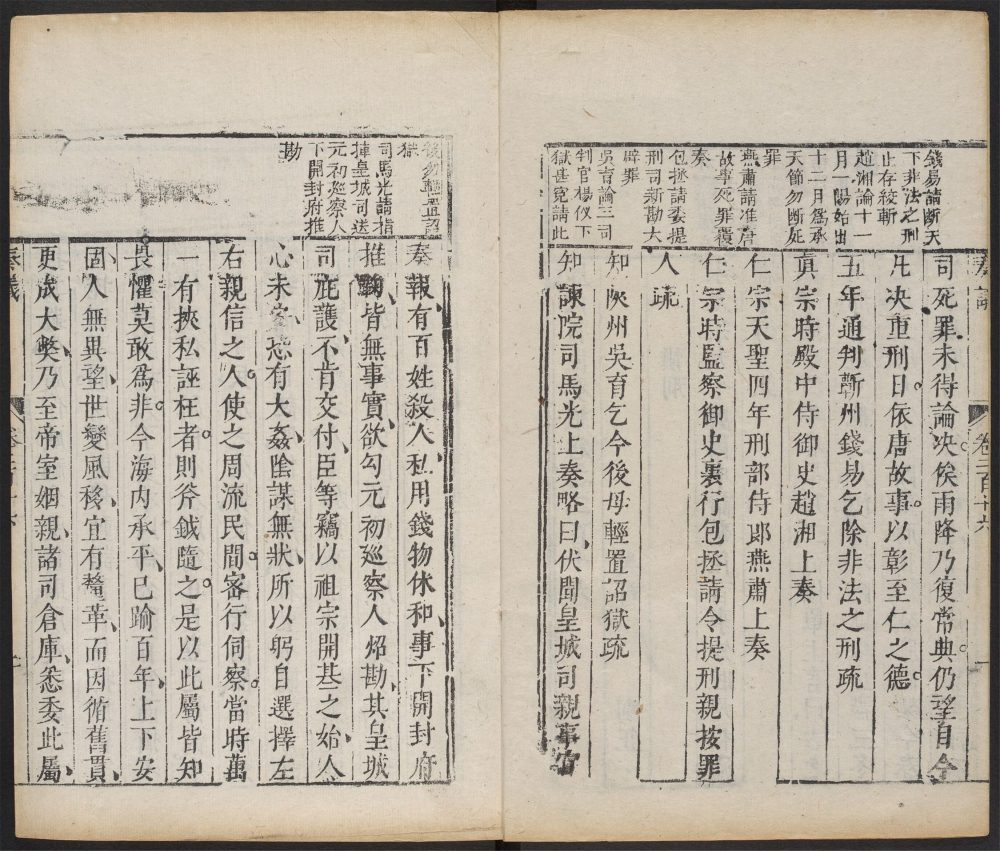 錢易請斷天
下非法之刑
止存絞斬
趙湘論十一
月一陽始出
十二月爲承
天節勿斷死
罪
燕肅請准唐
故事死罪覆
奏
包拯請委提
刑司新勘大
辟罪
吳育論三司
判官楊儀下
獄
司死罪未得論决俟雨降乃復常典仍望自今
凡决重刑日依唐故事以彰至仁之德
五年通判蘄州錢易乞除非法之刑疏
真宗時殿中侍御史趙湘上奏
仁宗天聖四年刑部侍郎燕肅上奏
仁宗時監察御史裏行包拯請令提刑親按罪
人疏
知陜州吳育乞今後毋輕置詔獄疏
知諫院司馬光上奏略曰伏聞皇城司親事官
卷二百十六
後勿輕置詔
獄
司馬光請指
揮皇城司送
元初廵察人
下開封府推
勘
奏報有百姓殺人私用錢物休和事下開封府
推鞫皆無事實欲勾元初廵察人炤勘其皇城
司庇護不肯交付臣等竊以祖宗開基之始人
心未安恐有大姦陰謀無狀所以躬自選擇左
右親信之人使之周流民間宻行伺察當時萬
一有挾私誣枉者則斧鉞隨之是以此屬皆知
畏懼莫敢爲非今海内承平已踰百年上下安
固人無異望世變風移宜有釐革而因循舊貫
更成大獘乃至帝室姻親諸司倉庫悉委此屬
奏議